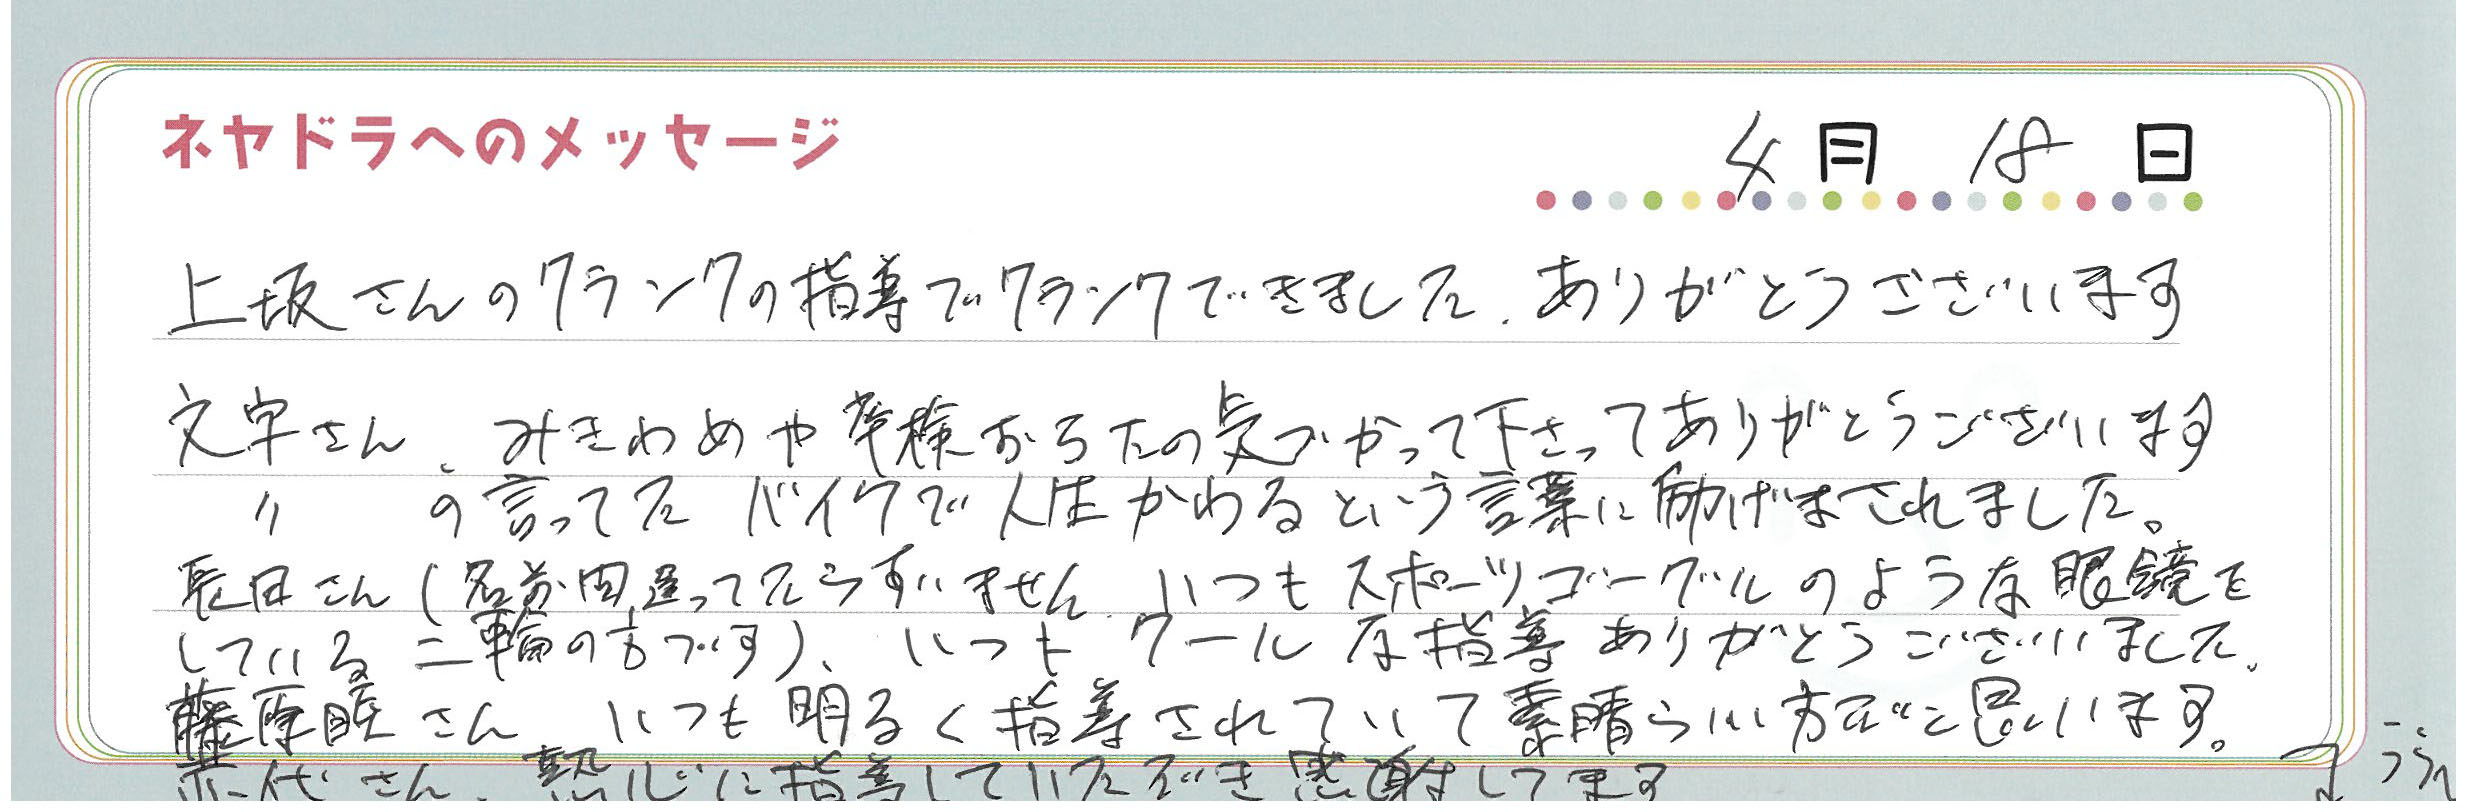 ネヤドラへのメッセージ
4月 18日
上坂さんのクランクの指導でクランクできました、ありがとうございます
文字さん、みきわめや卒検おちたの気づかって下さってありがとうございます
〃 の言ってた バイクで人生かわるという言葉に励げまされました。
長田さん(名前間違ってたらすいません、いつもスポーツゴーグルのような眼鏡を
している二輪の方です)、いつもクールな指導ありがとうございました、
藤原 さん いつも明るく指導されていて素晴らしい方だと思います。
さん、熱心に指導していただき感謝してます